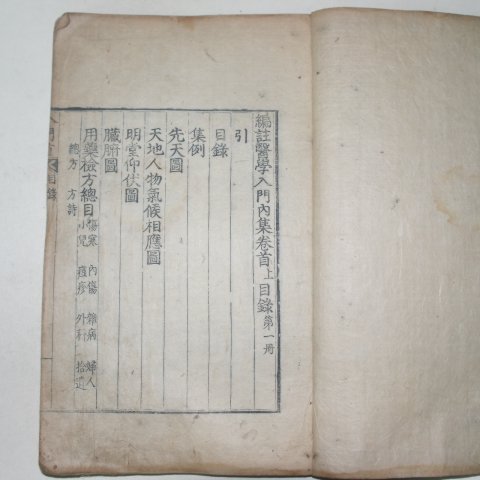 編註醫學入門內集卷首上目錄 第一冊
引
目錄
集例
先天圖
天地人物氣候相應圖
明堂仰伏圖
臟腑圖
用藥檢方總目 傷寒 內傷 雜病 婦人
小兒 痘疹 外科 拾遺
總方 方詩